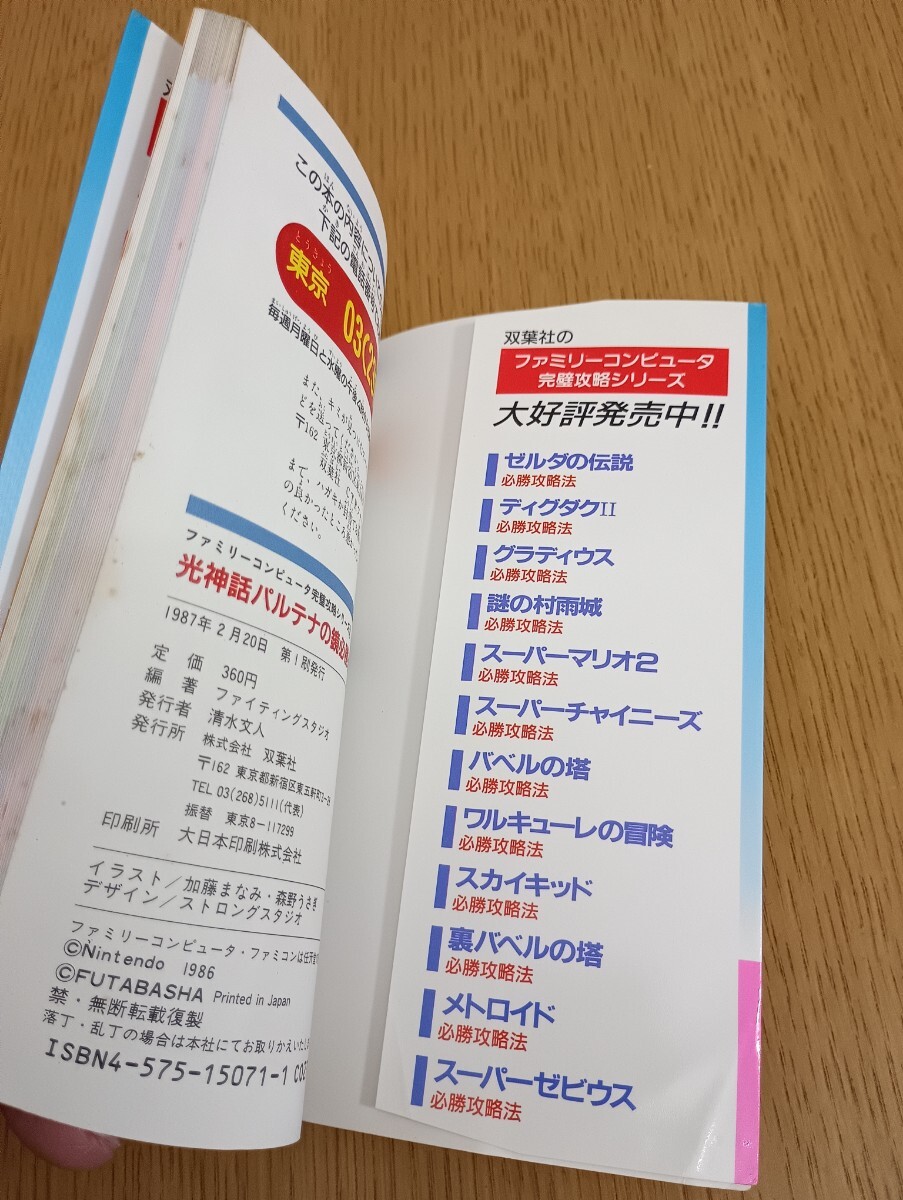 この本の内容につい
下記の電話番号
東京 03(2
毎週月曜日と水曜の午後
また、キミが
どを送ってください
〒162 東京都新宿区
双葉社
まで、ハガキか封書で
の良かったところ
ください。
ファミリーコンピュータ完璧攻略シリーズ
光神話パルテナの鏡必
1987年2月20日 第1刷発行
定価 360円
編著 ファイティングスタジオ
発行者 清水文人
発行所 株式会社 双葉社
〒162 東京都新宿区東五軒町3-28
TEL 03(268)5111(代表)
振替 東京8-117299
印刷所 大日本印刷株式会社
イラスト/加藤まなみ・森野うさぎ
デザイン/ストロングスタジオ
ファミリーコンピュータ・ファミコンは任天堂
©Nintendo 1986
©FUTABASHA Printed in Japan
禁・無断転載復製
落丁・乱丁の場合は本社にてお取りかえいたし
ISBN4-575-15071-1 C02
双葉社の
ファミリーコンピュータ
完璧攻略シリーズ
大好評発売中!!
ゼルダの伝説
必勝攻略法
ディグダグII
必勝攻略法
グラディウス
必勝攻略法
謎の村雨城
必勝攻略法
スーパーマリオ2
必勝攻略法
スーパーチャイニーズ
必勝攻略法
バベルの塔
必勝攻略法
ワルキューレの冒険
必勝攻略法
スカイキッド
必勝攻略法
裏バベルの塔
必勝攻略法
メトロイド
必勝攻略法
スーパーゼビウス
必勝攻略法